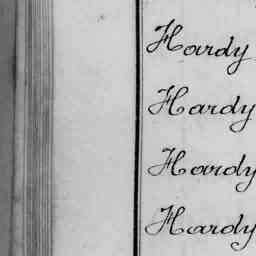 Hardy
Hardy
Hardy
Hardy